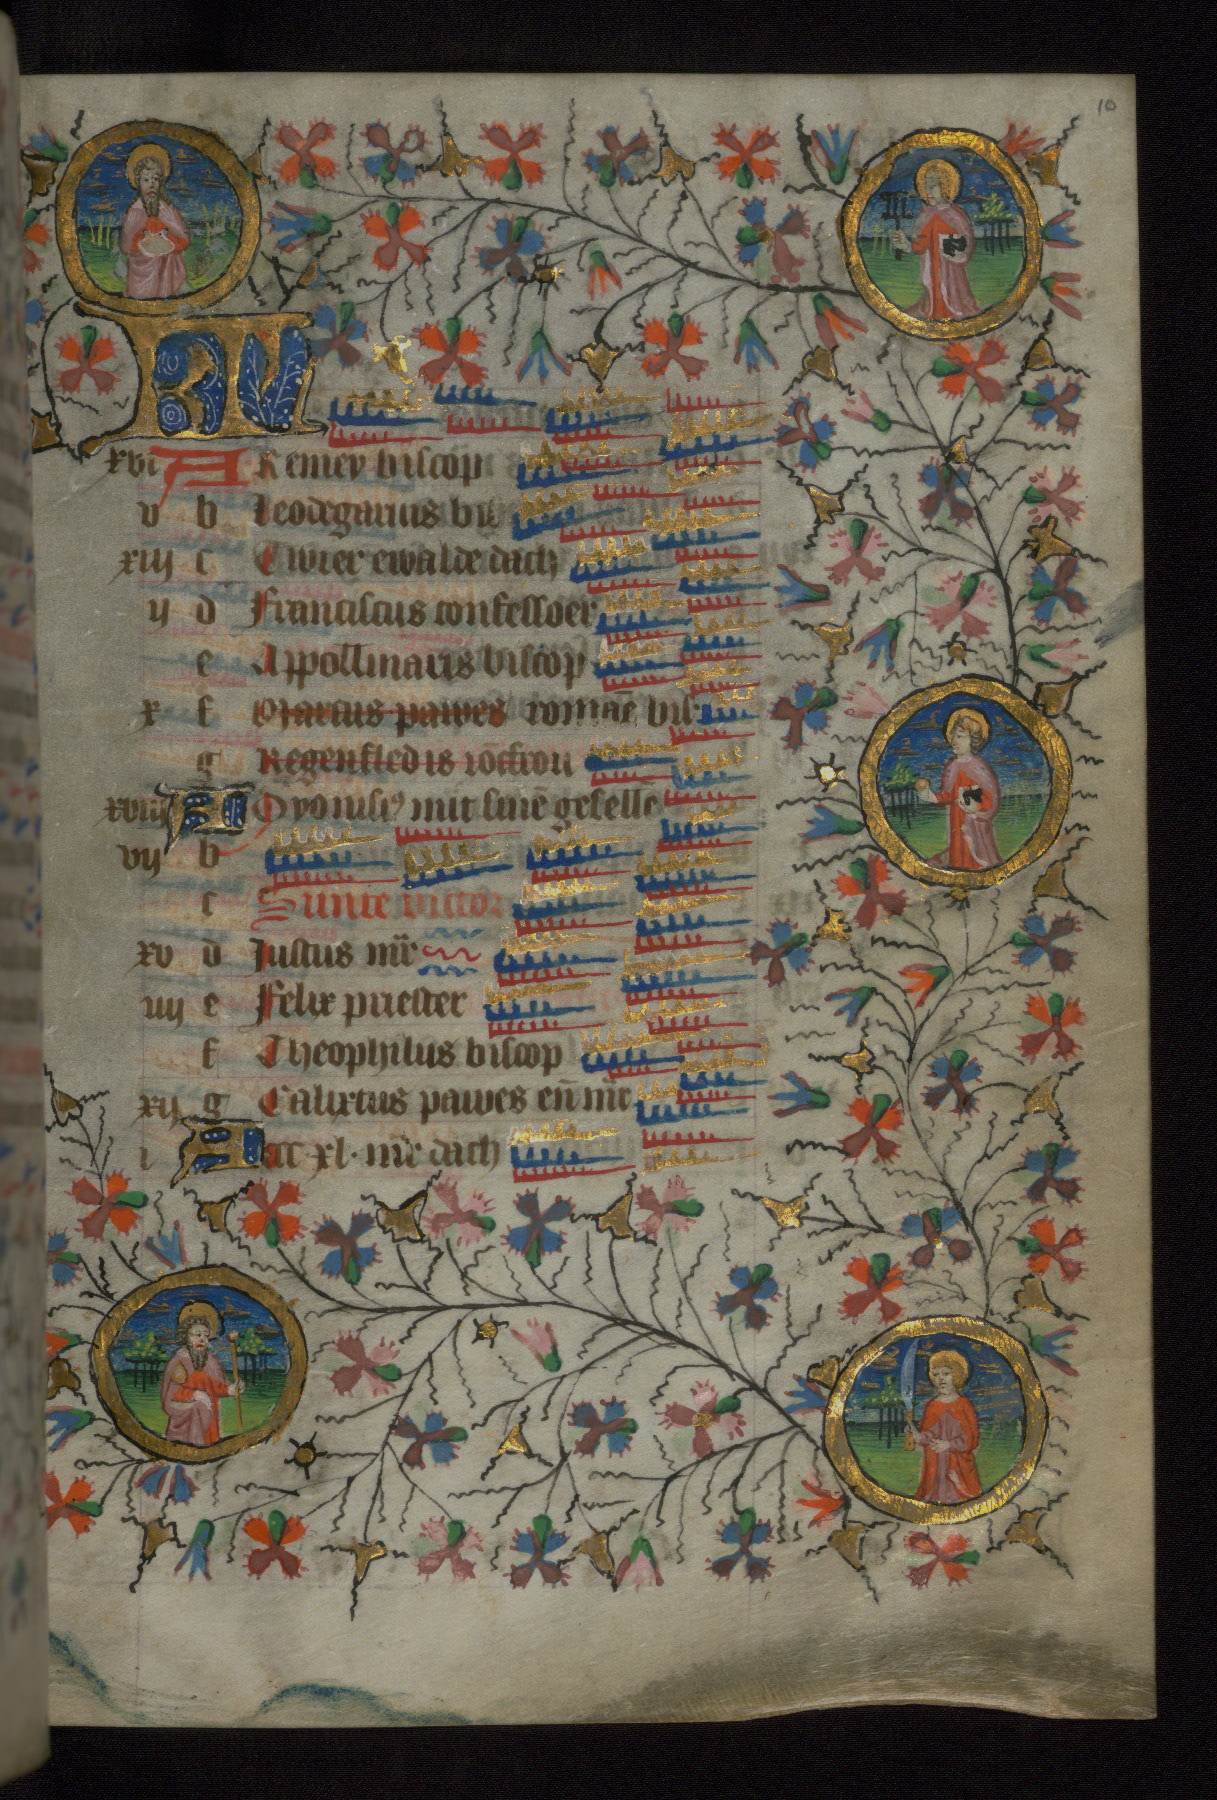 10
KL
xvi A Remey biscop
v b Leodegarius bis
xiij c Twier ewalde dach
ij d Franciscus confessoer
e Appollinaris biscop
x f Marcus pawes romē bis
g Regenfledis iōcfrou
xviij A Dyonisi⁹ mit sinē gesellē
vij b
c Sunte victor
xv d Justus mr̄
iiij e Felix priester
f Theophilus biscop
xij g Calixtus pawes eñ mr̄
i A xl. mr̄ dach